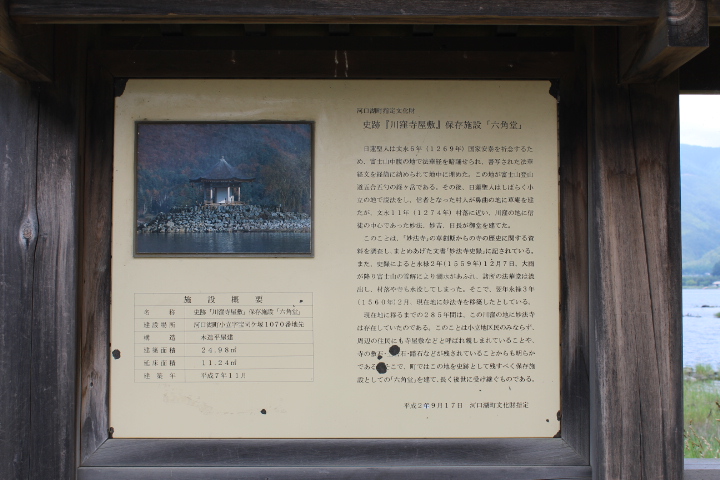 河口湖町指定文化財
史跡『川窪寺屋敷』保存施設「六角堂」
日蓮聖人は文永6年（1269年）国家安泰を祈念するた
め、富士山中腹の地で法華経を
経文を経箱に納められて地中に埋めた。この地が富士山登山
道五合五勺の経ヶ岳である。その後、日蓮聖人はしばらく小
立の地で説法をし、信者となった村人が の地に草庵を建
たが、文永11年（1274年）村落に近い、川窪の地に信
徒の中心であった妙法、妙吉、日長が御堂を建てた。
このことは、「妙法寺」の草創期からの寺の歴史に関する資
料を調査し、まとめあげた文書「妙法寺史録」に記されている。
また、史録によると永禄2年（1559年）12月7日、大雨
が降り富士山の雪解により湖水があふれ、諸所の法華堂は流
出し、村落や寺も水没してしまった。そこで、翌年永禄3年
（1560年）2月、現在地に妙法寺を移築したとしている。
現在地に移るまでの285年間は、この川窪の地に妙法寺
は存在していたのである。このことは小立地区民のみならず、
周辺の住民にも寺屋敷などと呼ばれ親しまれていることや、
寺の敷石・ 石・踏石などが残されていることからも明らか
である。そこで、町ではこの地を史跡として残すべく保存施
設としての「六角堂」を建て、長く後世に受け継ぐものである。
平成2年9月17日 河口湖町文化財指定
施設概要
名称 史跡『川窪寺屋敷』保存施設「六角堂」
建設場所 河口湖町小立字宝司ケ塚1070番地先
構造 木造平屋建
建築面積 24.98㎡
延床面積 11.24㎡
建築年 平成7年11月